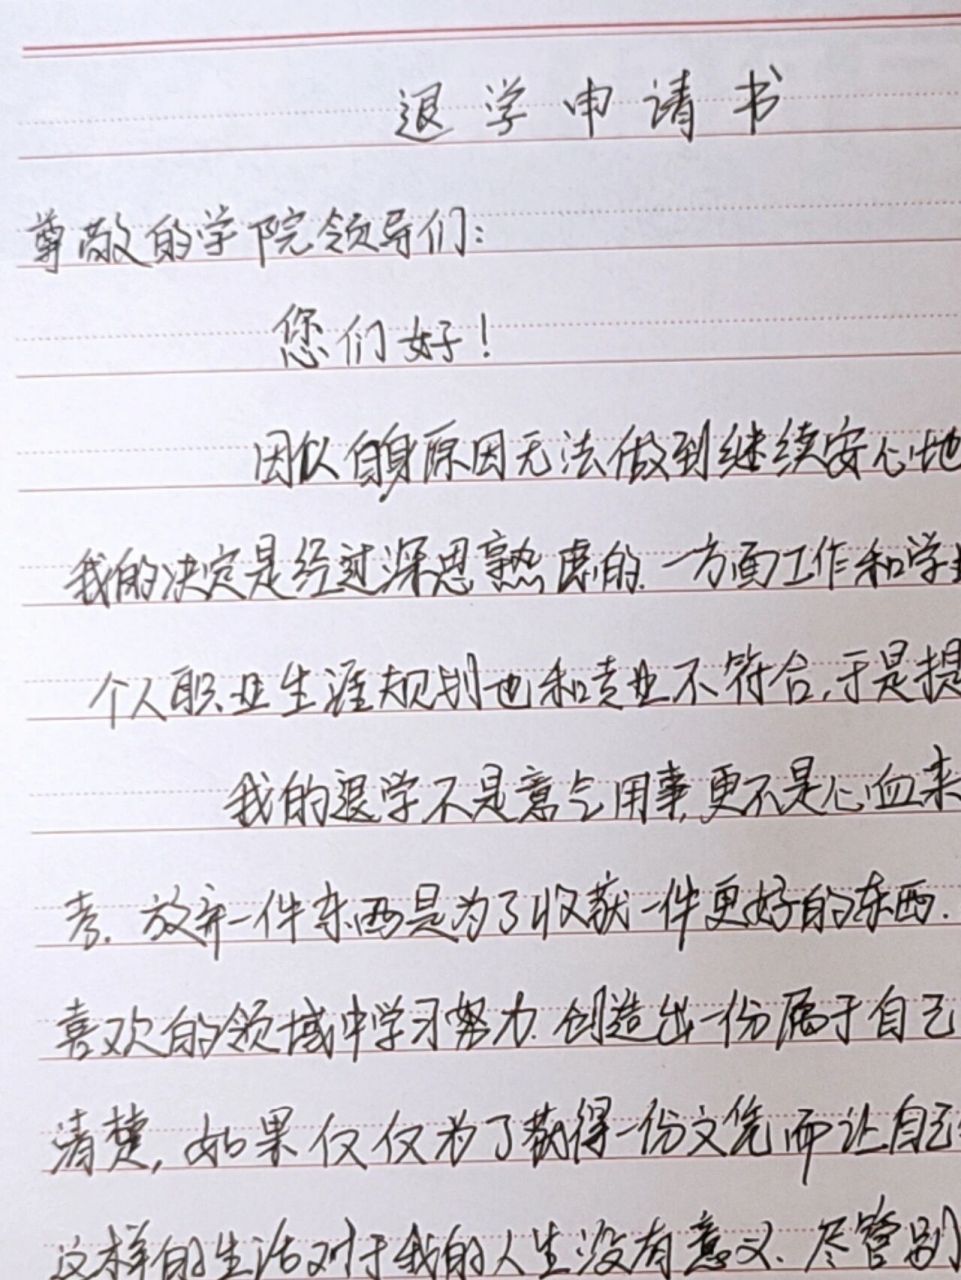 退学申请书
尊敬的学院领导们:
您们好!
因以自身原因无法做到继续安心地
我的决定是经过深思熟虑的.一方面工作和学
个人职业生涯规划也和专业不符合,于是提
我的退学不是意气用事,更不是心血来
考.放弃一件东西是为了收获一件更好的东西.
喜欢的领域中学习努力.创造出一份属于自己
清楚,如果仅仅为了获得一份文凭而让自己
这样的生活对于我的人生没有意义.尽管别